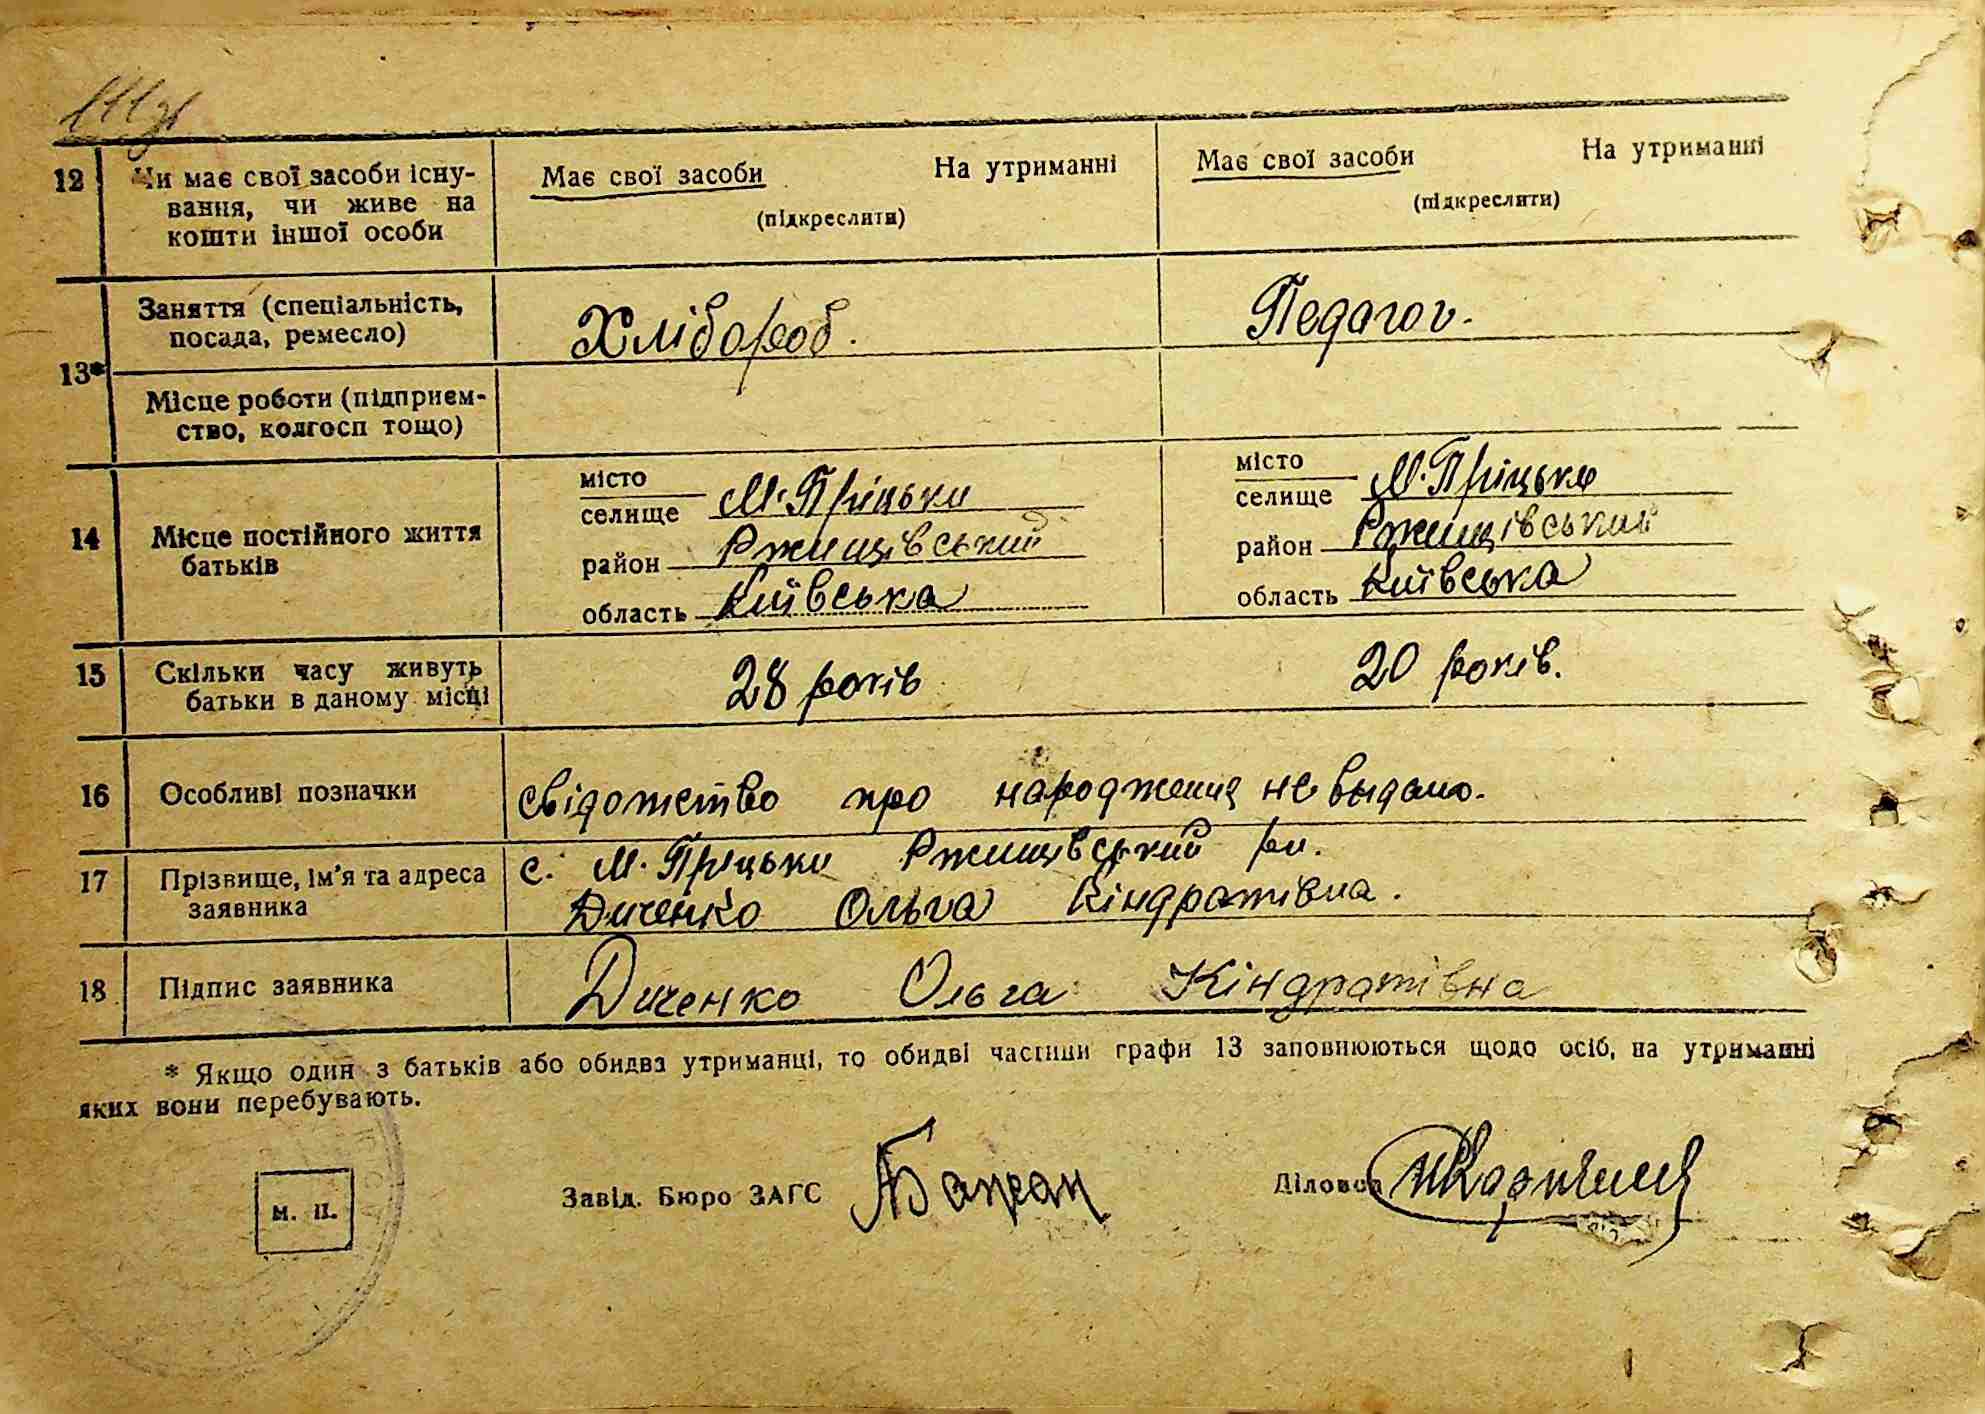 12 Чи має свої засоби існу- Має свої засоби На утриманні Має свої засоби На утриманні
вання, чи живе на (підкреслити) (підкреслити)
кошти іншої особи
13* Заняття (спеціальність, Хлібороб. Педагог.
посада, ремесло)
Місце роботи (підприєм-
ство, колгосп тощо)
14 Місце постійного життя
батьків
місто
селище М. Пріцьки
район Ржищівський
область Київська
місто
селище М. Пріцьки
район Ржищівський
область Київська
15 Скільки часу живуть 28 років 20 років.
батьки в даному місці
16 Особливі позначки свідотство про народження не выдано.
17 Прізвище, ім'я та адреса с. М. Пріцьки Ржищівський рн.
заявника Диченко Ольга Кіндратівна.
18 Підпис заявника Диченко Ольга Кіндратівна
* Якщо один з батьків або обидва утриманці, то обидві частини графи 13 заповнюються щодо осіб, на утриманні
яких вони перебувають.
м. п. Завід. Бюро ЗАГС Бажан Діловод